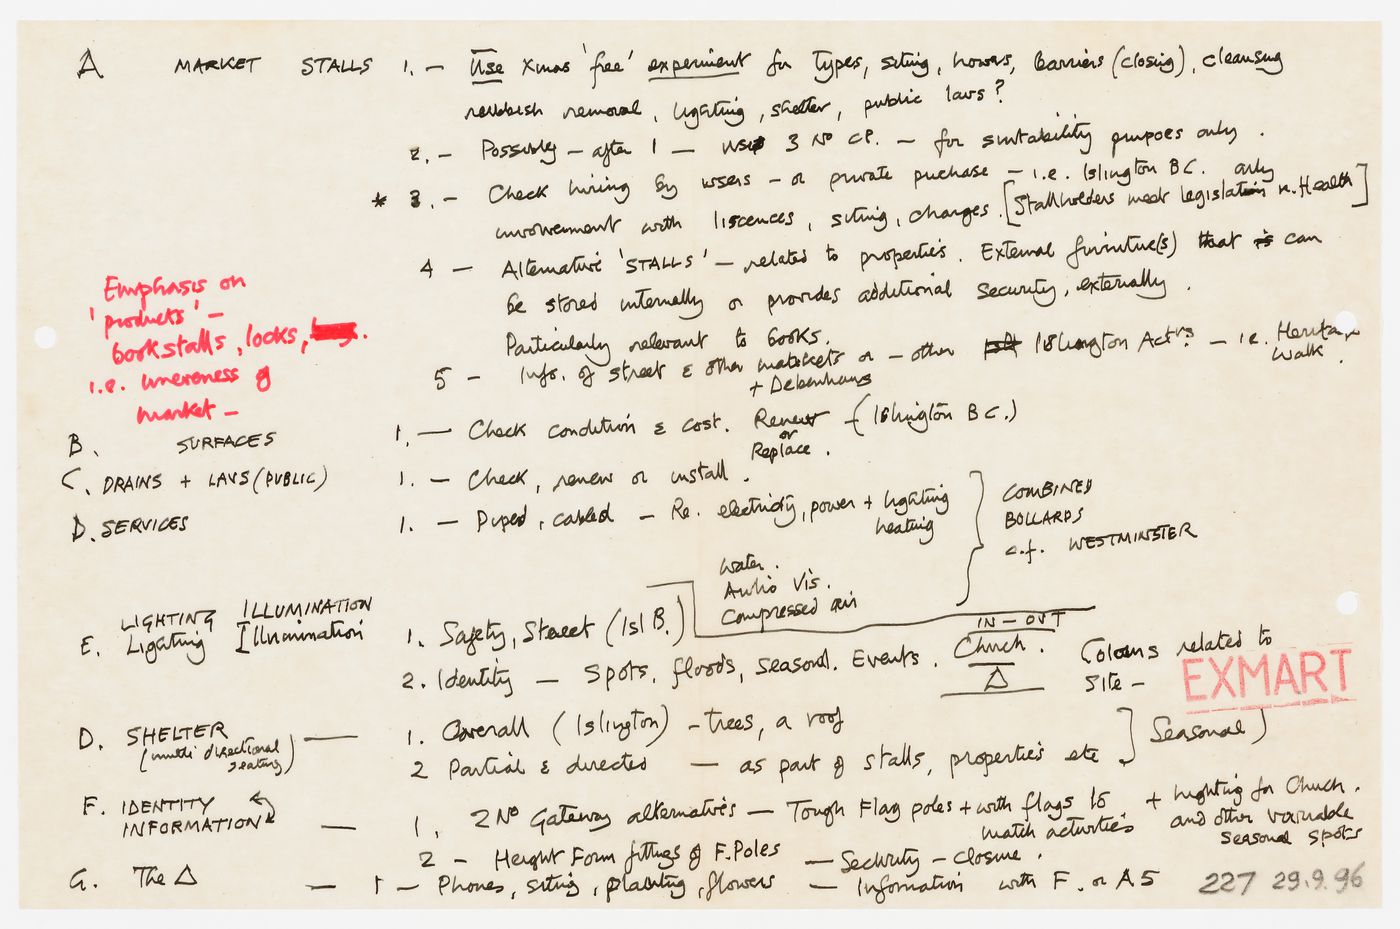 A MARKET STALLS 1. - Use Xmas 'free' experiment for types, siting, hours, barriers (closing), cleansing
rubbish removal, lighting, shelter, public lavs?
2. - Possibly - after 1 - use 3 No CP. - for suitability purpoes only.
* 3. - Check hiring by users - or private puchase - i.e. Islington BC. only
involvement with liscences, siting, charges. [Stallholders meet legislation r. Health]
4 - Alternative 'STALLS' - related to properties. External furniture(s) that is can
be stored internally or provides additional security, externally.
Particularly relevant to books.
5 - Info. of street & other markets or - other Islington Actvs. - i.e. Heritage
+ Debenhams
Walk.
Emphasis on
'products' -
bookstalls, locks,
i.e. awareness of
market -
B. SURFACES 1. - Check condition & cost. Renew - (Islington BC.)
or
Replace.
C. DRAINS + LAVS (PUBLIC) 1. - Check, renew or install.
D. SERVICES 1. - Duped, cabled - Re. electricity, power + lighting
heating
Water.
Audio Vis.
Compressed air
COMBINED
BOLLARDS
c.f. WESTMINSTER
LIGHTING ILLUMINATION
E. Lighting Illumination 1. Safety, Street (Isl B.)
IN - OUT
2. Identity - Spots, floods, seasonal. Events. Church. Colours related to
Δ Site -
EXMART
D. SHELTER 1. Overall (Islington) - trees, a roof
(multi directional
seating)
2 Partial & directed - as part of stalls, properties etc
Seasonal)
F. IDENTITY
INFORMATION - 1. 2 No Gateway alternatives - Tough Flag poles + with flags to
match activities
+ lighting for Church.
and other variable
seasonal spots
2 - Height Form fittings of F. Poles - Security - closure.
G. The Δ - 1 - Phones, siting, planting, flowers - Information with F. or A5
227 29.9.96